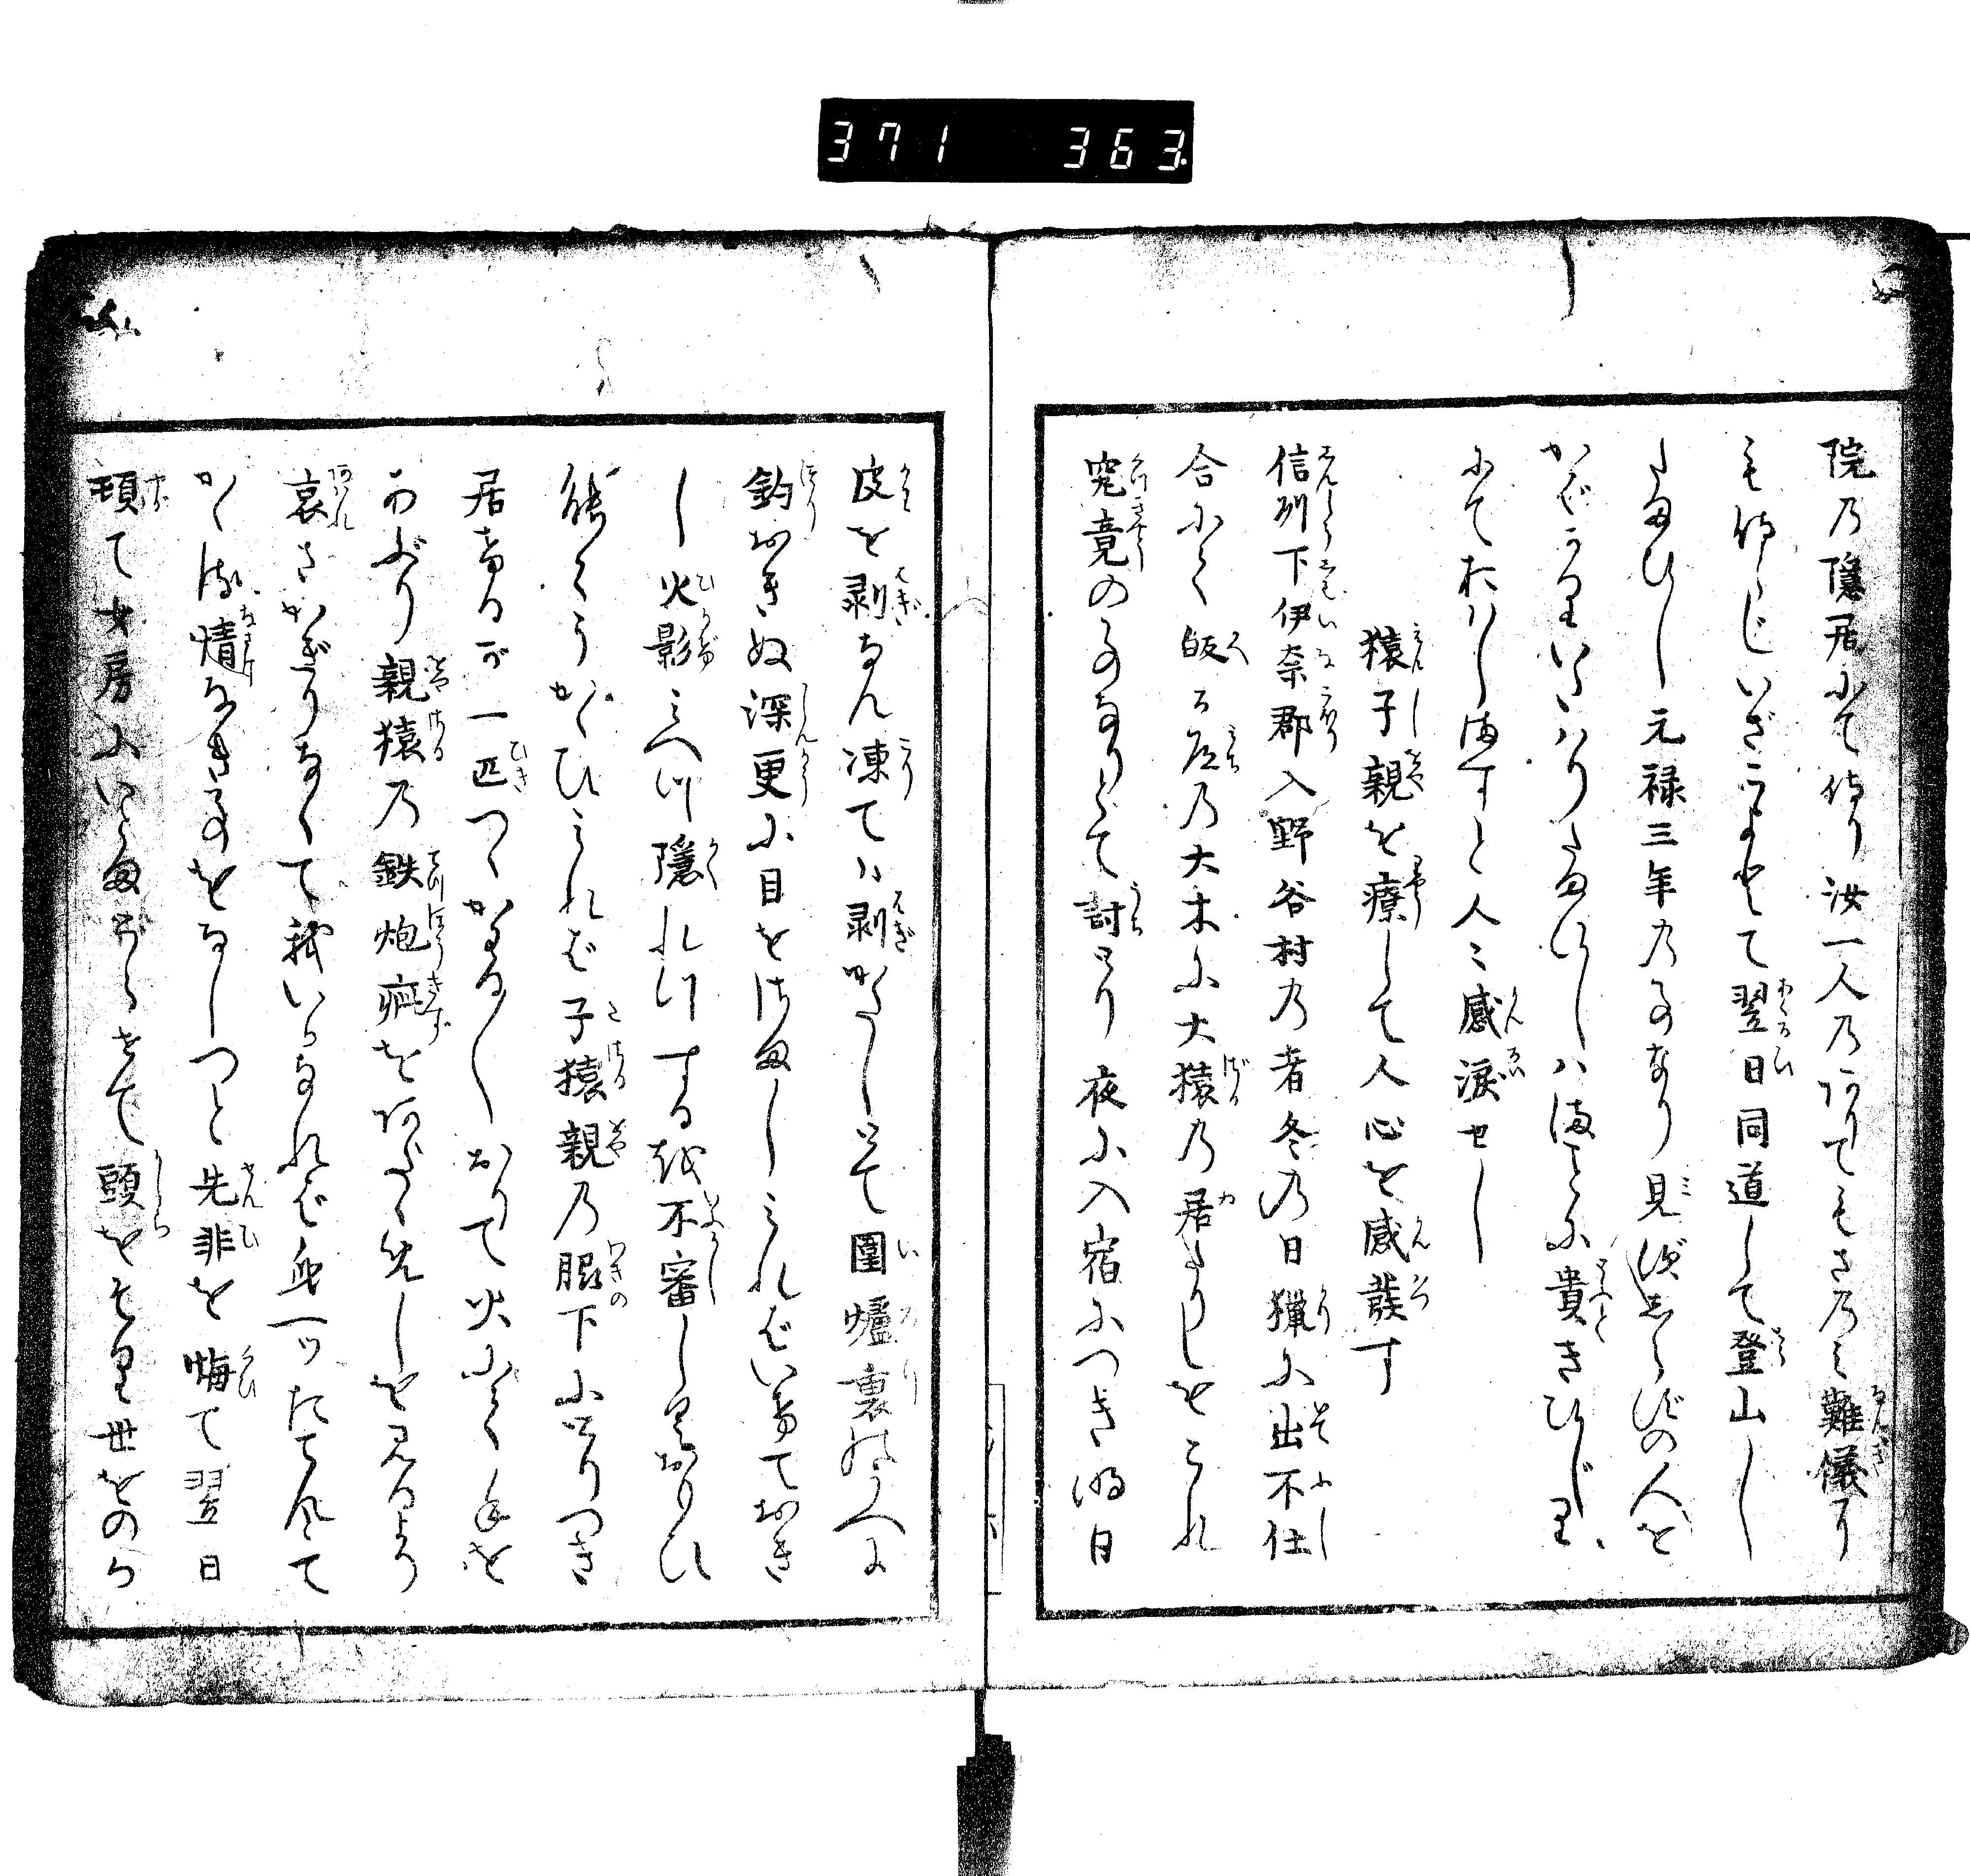 371 363
院乃隠居にて侍り汝一人乃ありてもさ乃み難儀に
も侍らじいざこなたとて翌日同道して登山し
たまひし元禄三年乃事なり見ずしらずの人を
かばかりいたはりたまひしはまことに貴きひじり
にておはしますと人々感涙せし
猿子親を療して人心を感発す
信州下伊奈郡入野谷村乃者冬乃日猟に出不仕
合にて皈る道乃大木に大猿乃居たりしをこれ
究竟の事なりとて討とり夜に入宿につき明日
皮を剥なん凍ては剥がたしとて囲爐裏乃うへに
釣おきぬ深更に目をさましみればいけておき
し火影みへつ隠れつする故不審しくおもひ
能くうかゞひみれば子猿親乃脇下にとりつき
居けるが一匹づゝかはる〴〵おりて火にて手を
あぶり親猿乃鉄炮疵をあたゝめしを見るより
哀さかぎりなくて我いかなれば身一ツたてんとて
かく情なき事をなしつと先非を悔て翌日
頓て女房にいとまとらせて頭をそり世をのが